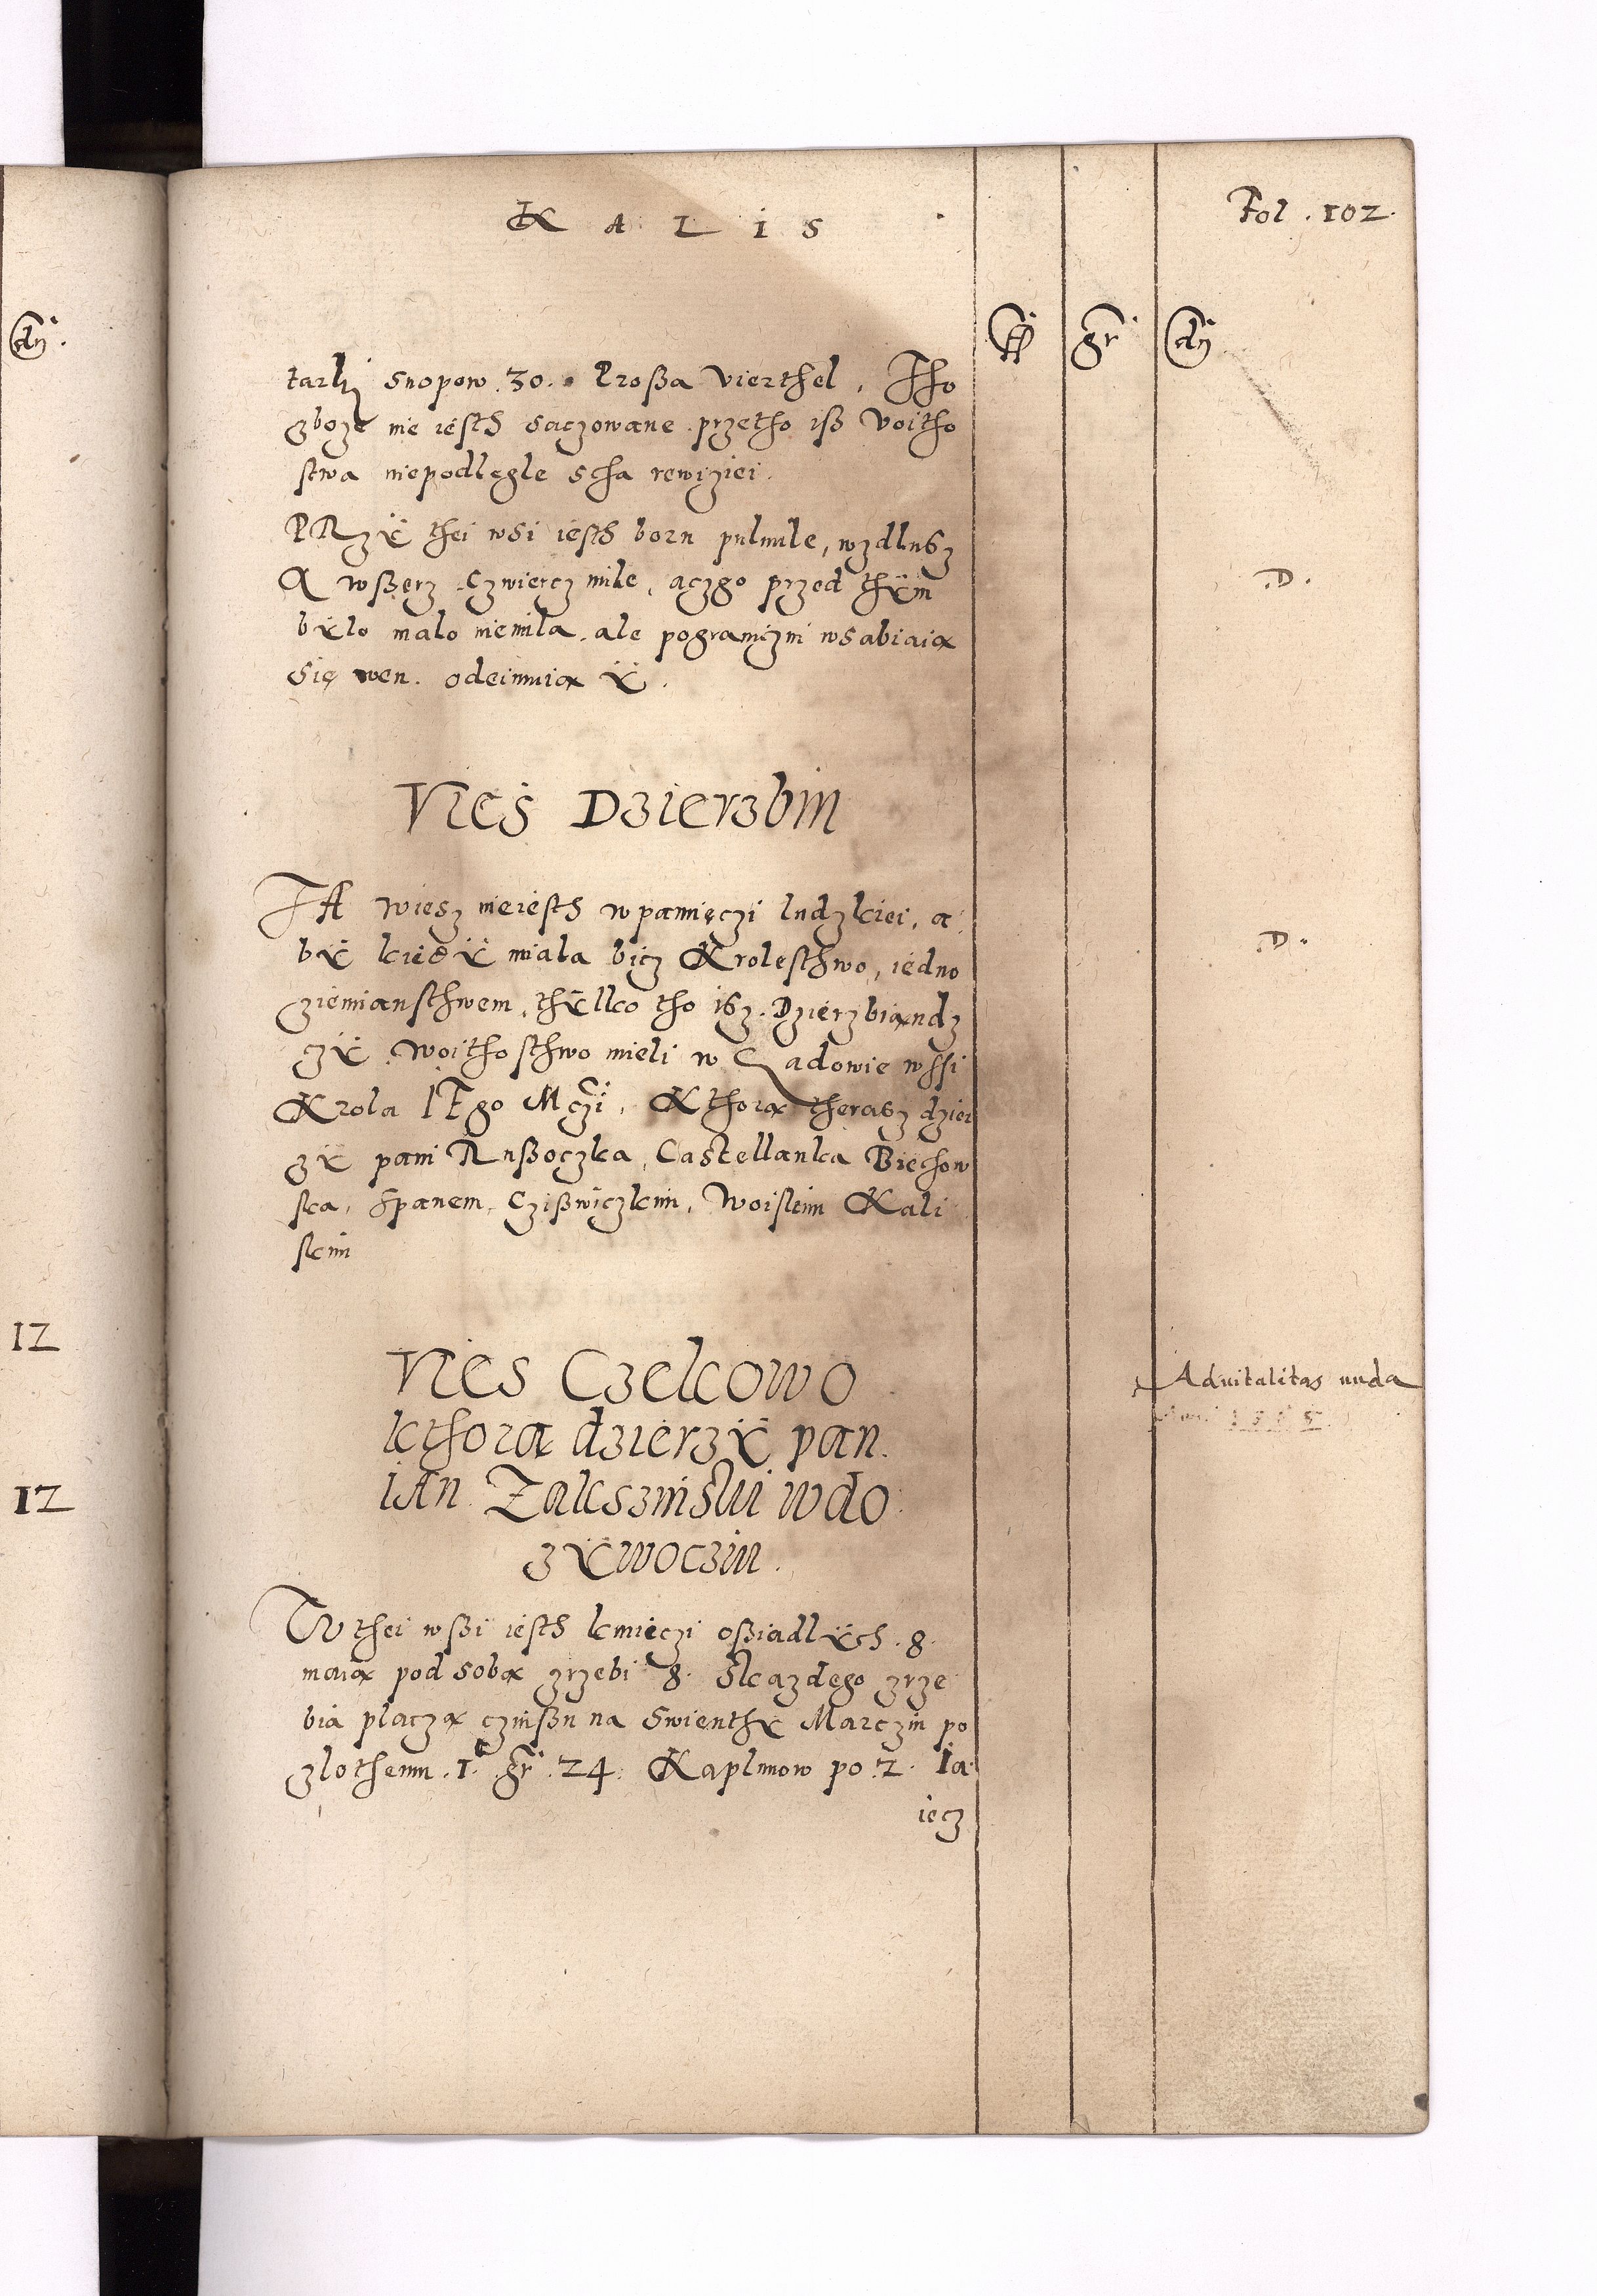 KALIS
Fol. 102.
fl gr dń
tarki snopow 30. Proßa vierthel. Tho
zboze nie iesth saczowane przetho iß voitho
stwa niepodlęgle scha rewiziei.
PRzÿ thei wsi iesth born pulmile, wzdlusz
A wßerz czwiercz mile, aczgo przed thÿm
bÿlo malo niemila, ale pograniczni wsabiaią
się wen. odeimuią ÿ.
.D.
Vieś Dzierzbin
TA wiesz nieiesth w pamięczi ludzkiei, a
bÿ kiedÿ miala bicz Krolesthwo, iedno
ziemiansthwem, thÿlko tho isz Dzierzbiandz
zÿ woithosthwo mieli w Ladowie wssi
Krola IEgo Mczi, Kthorą therasz dzier
zÿ pani Rußoczka, Castellanka Biechow
ska, spanem, Czißwiczkim, Woiskim Kali
skim
.D.
Vies Czekowo
kthora dzierzÿ pan
iAn Zakrzinski wdo
zÿwoczin.
Aduitalitas nuda
W thei wßi iesth kmieczi oßiadlÿch .8.
maią pod sobą zrzebi 8. Skazdego zrze
bia placzą czinßu na Swienthÿ Marczin po
zlothemu .1. gr .24. Kaplunow po .2. Ia
iecz
dń.
12
12